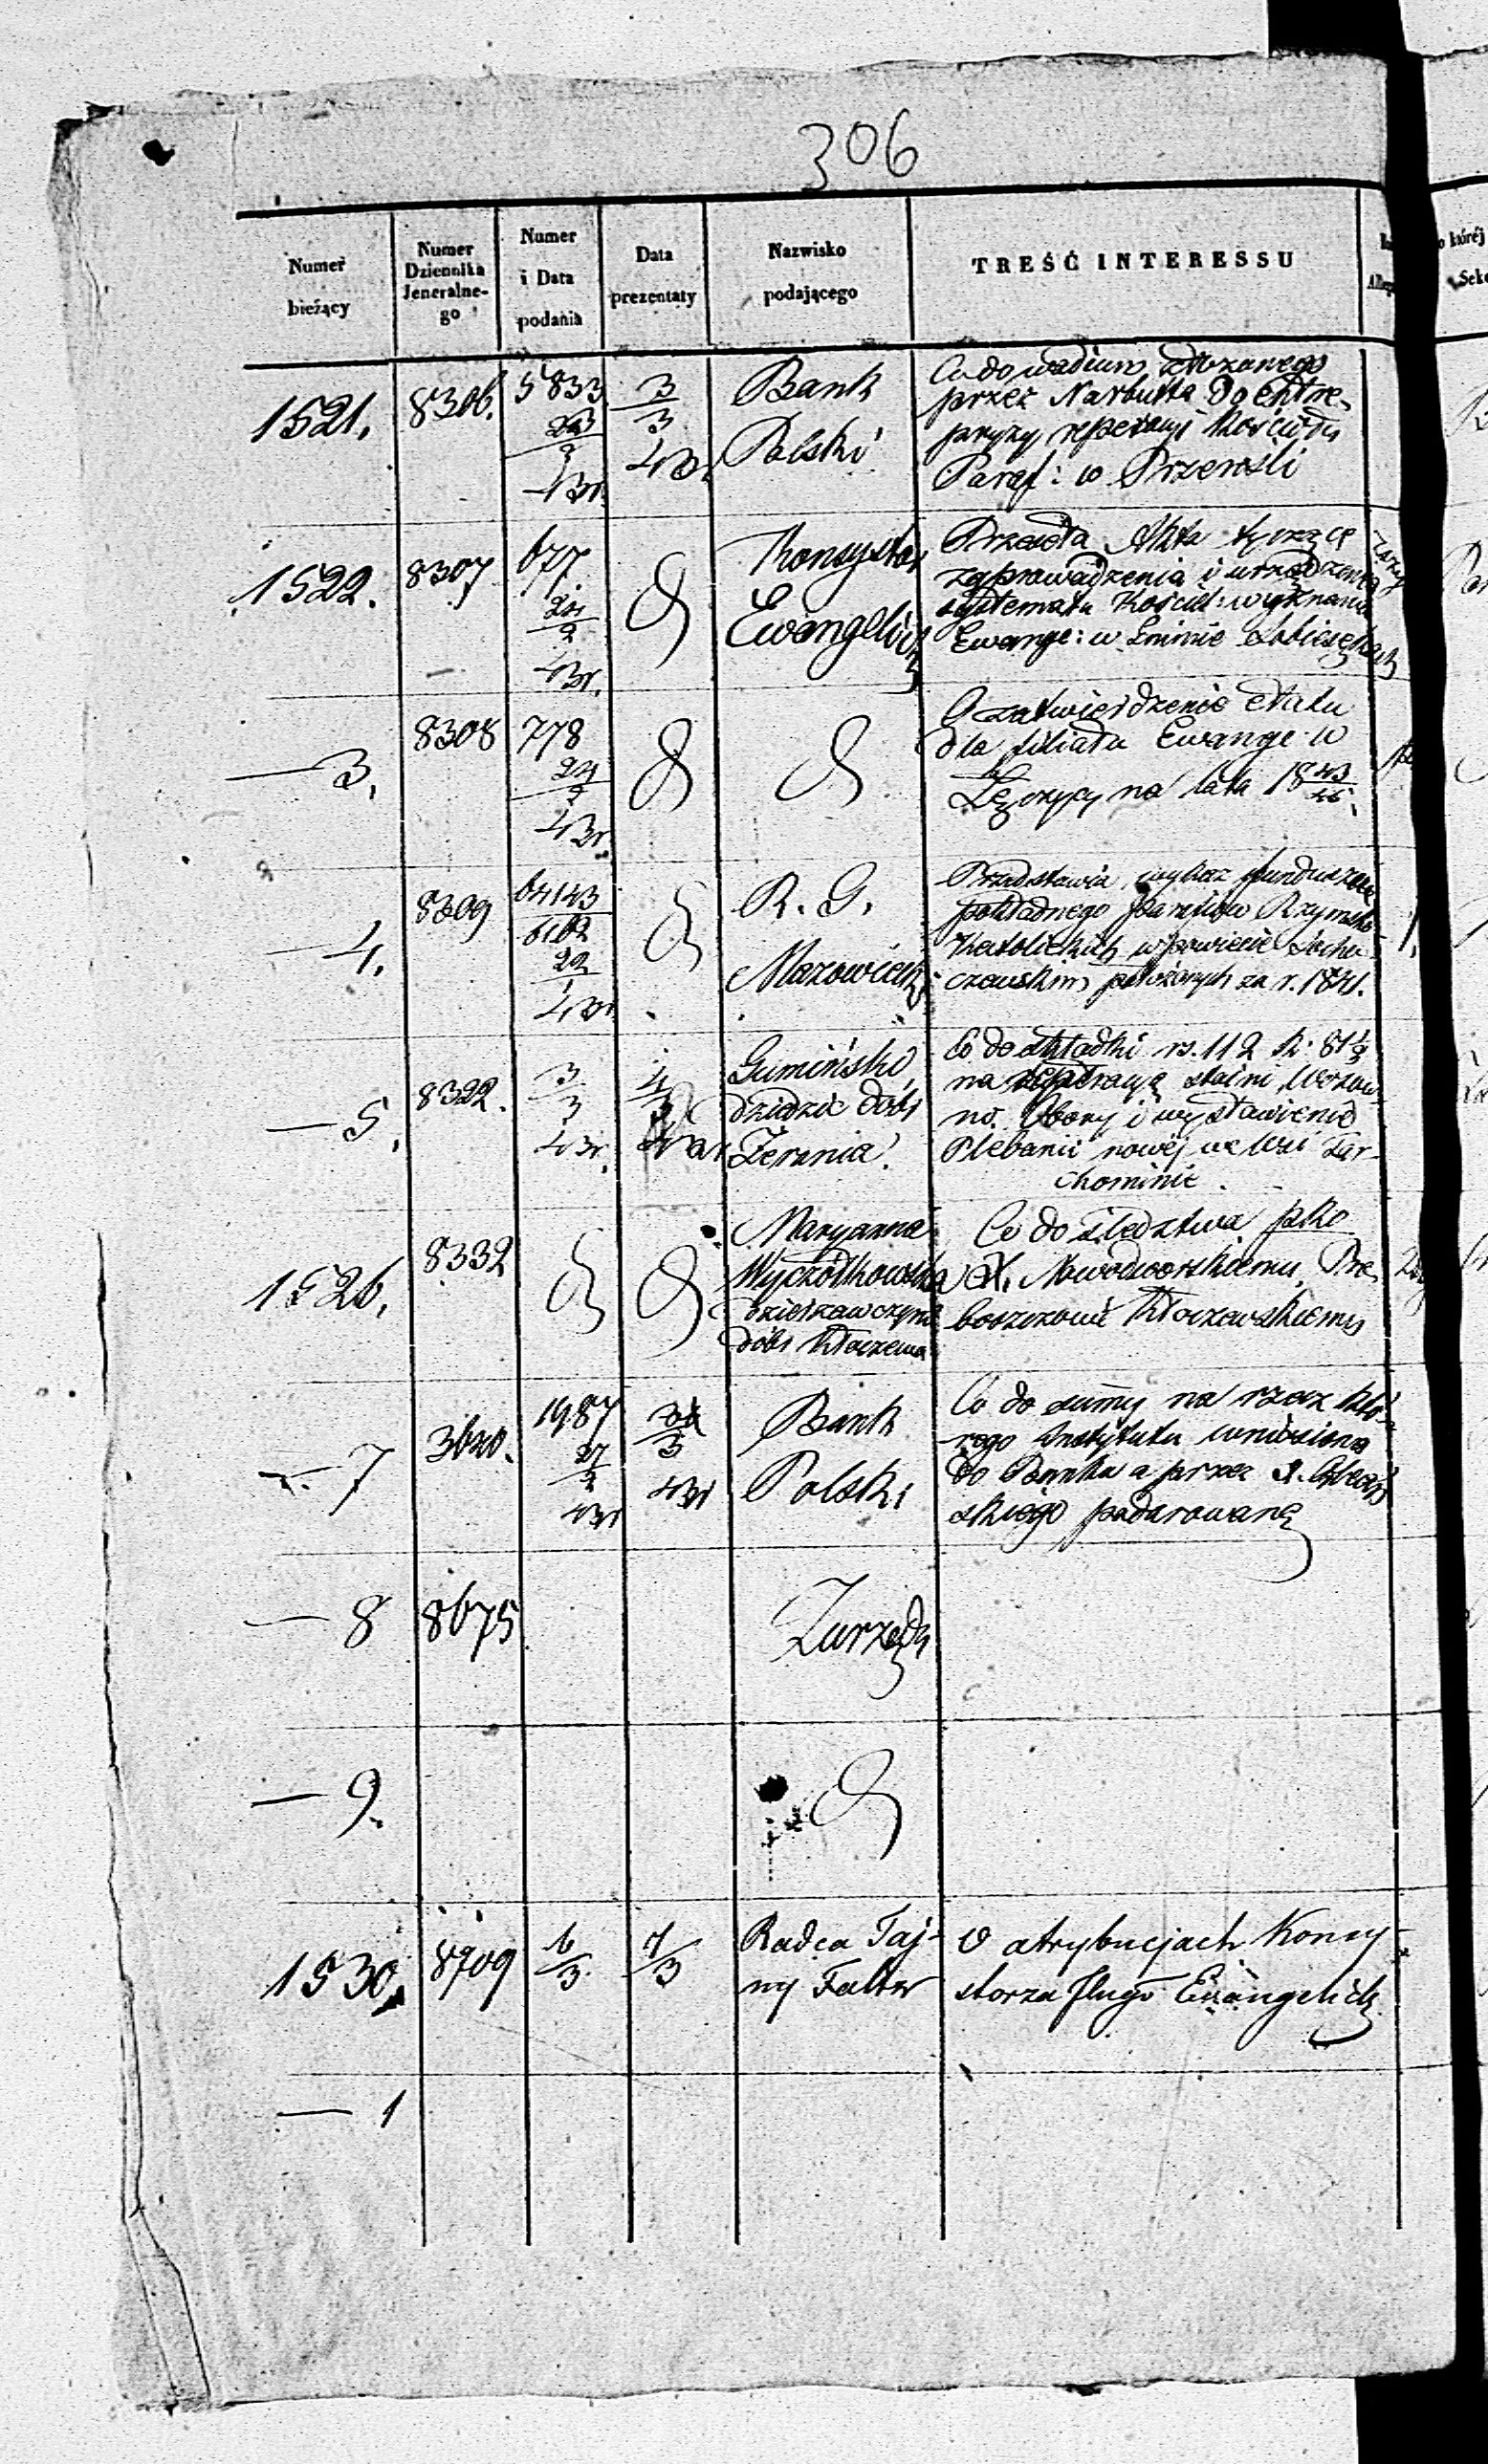 306
Numer bieżący
Numer Dziennika Jeneralne- go
Numer i Data podania
Data prezentaty
Nazwisko podającego
TREŚĆ INTERESSU
1521. 8306. 5833 23/2 43r. 3/3 43r. Bank Polski
Co do wadium złożonego
przez Narbutta do entre-
pryzy reperacyi Kościoła
Paraf: w Przerośli
1522. 8307 677 24/2 43r. Konsystor Ewangelick
Przesyła Akta tyczące
zaprowadzenia i urządzenia
systematu Kościel: wyznania
Ewange: w Gminie
— 3. 8308 778 24/2 43r.
O zatwierdzenie etatu
dla filiału Ewange w
Łęczycy na lata 18 43/45.
— 4. 8309 64143/6162 22/2 43r. R. G. Mazowiecki
Przedstawia wykaz funduszów
pokładnego parafiów Rzymsko
Katolickich w powiecie Socha-
czewskim położonych za r. 1841.
— 5. 8322. 3/3 43r. 4/3 43r
Gumiński
dziedzic dóbr
Żerania.
Co do składki rs. 112 k. 81 1/2
na reperacyą stajni, Wozow-
ni, Obory i wystawienie
Plebanii nowéj we Wsi Tar-
chominie
1526. 8332
Maryanna
Wyczółkowska
dzierżawczyni
dóbr Kłoczewa
Co do śledztwa pko
X. Nowodworskiemu, Pro-
boszczowi Kłoczewskiemu
— 7 3620. 1987 27/2 43r 3/3 43r Bank Polski
Co do summy na rzecz któ-
rego Instytutu wniesiona
do Banku a przez
skiego podarowaną
— 8 8675 Zurzędu
— 9.
1530. 8709 6/3. 7/3
Radca Taj-
ny Falter
O atrybucjach Konsy-
storza Augs Ewangelick
— 1